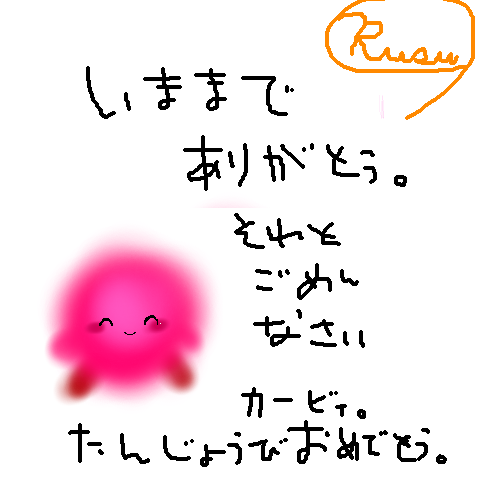 Rusu
いままで
ありがとう。
それと
ごめん
なさい
カービィ。
たんじょうびおめでとう。